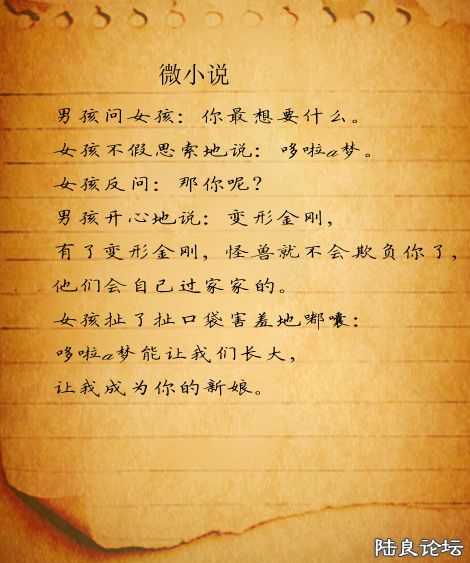 微小说
男孩问女孩：你最想要什么。
女孩不假思索地说：哆啦a梦。
女孩反问：那你呢？
男孩开心地说：变形金刚，
有了变形金刚，怪兽就不会欺负你了，
他们会自己过家家的。
女孩扯了扯口袋害羞地嘟囔：
哆啦a梦能让我们长大，
让我成为你的新娘。
陆良论坛